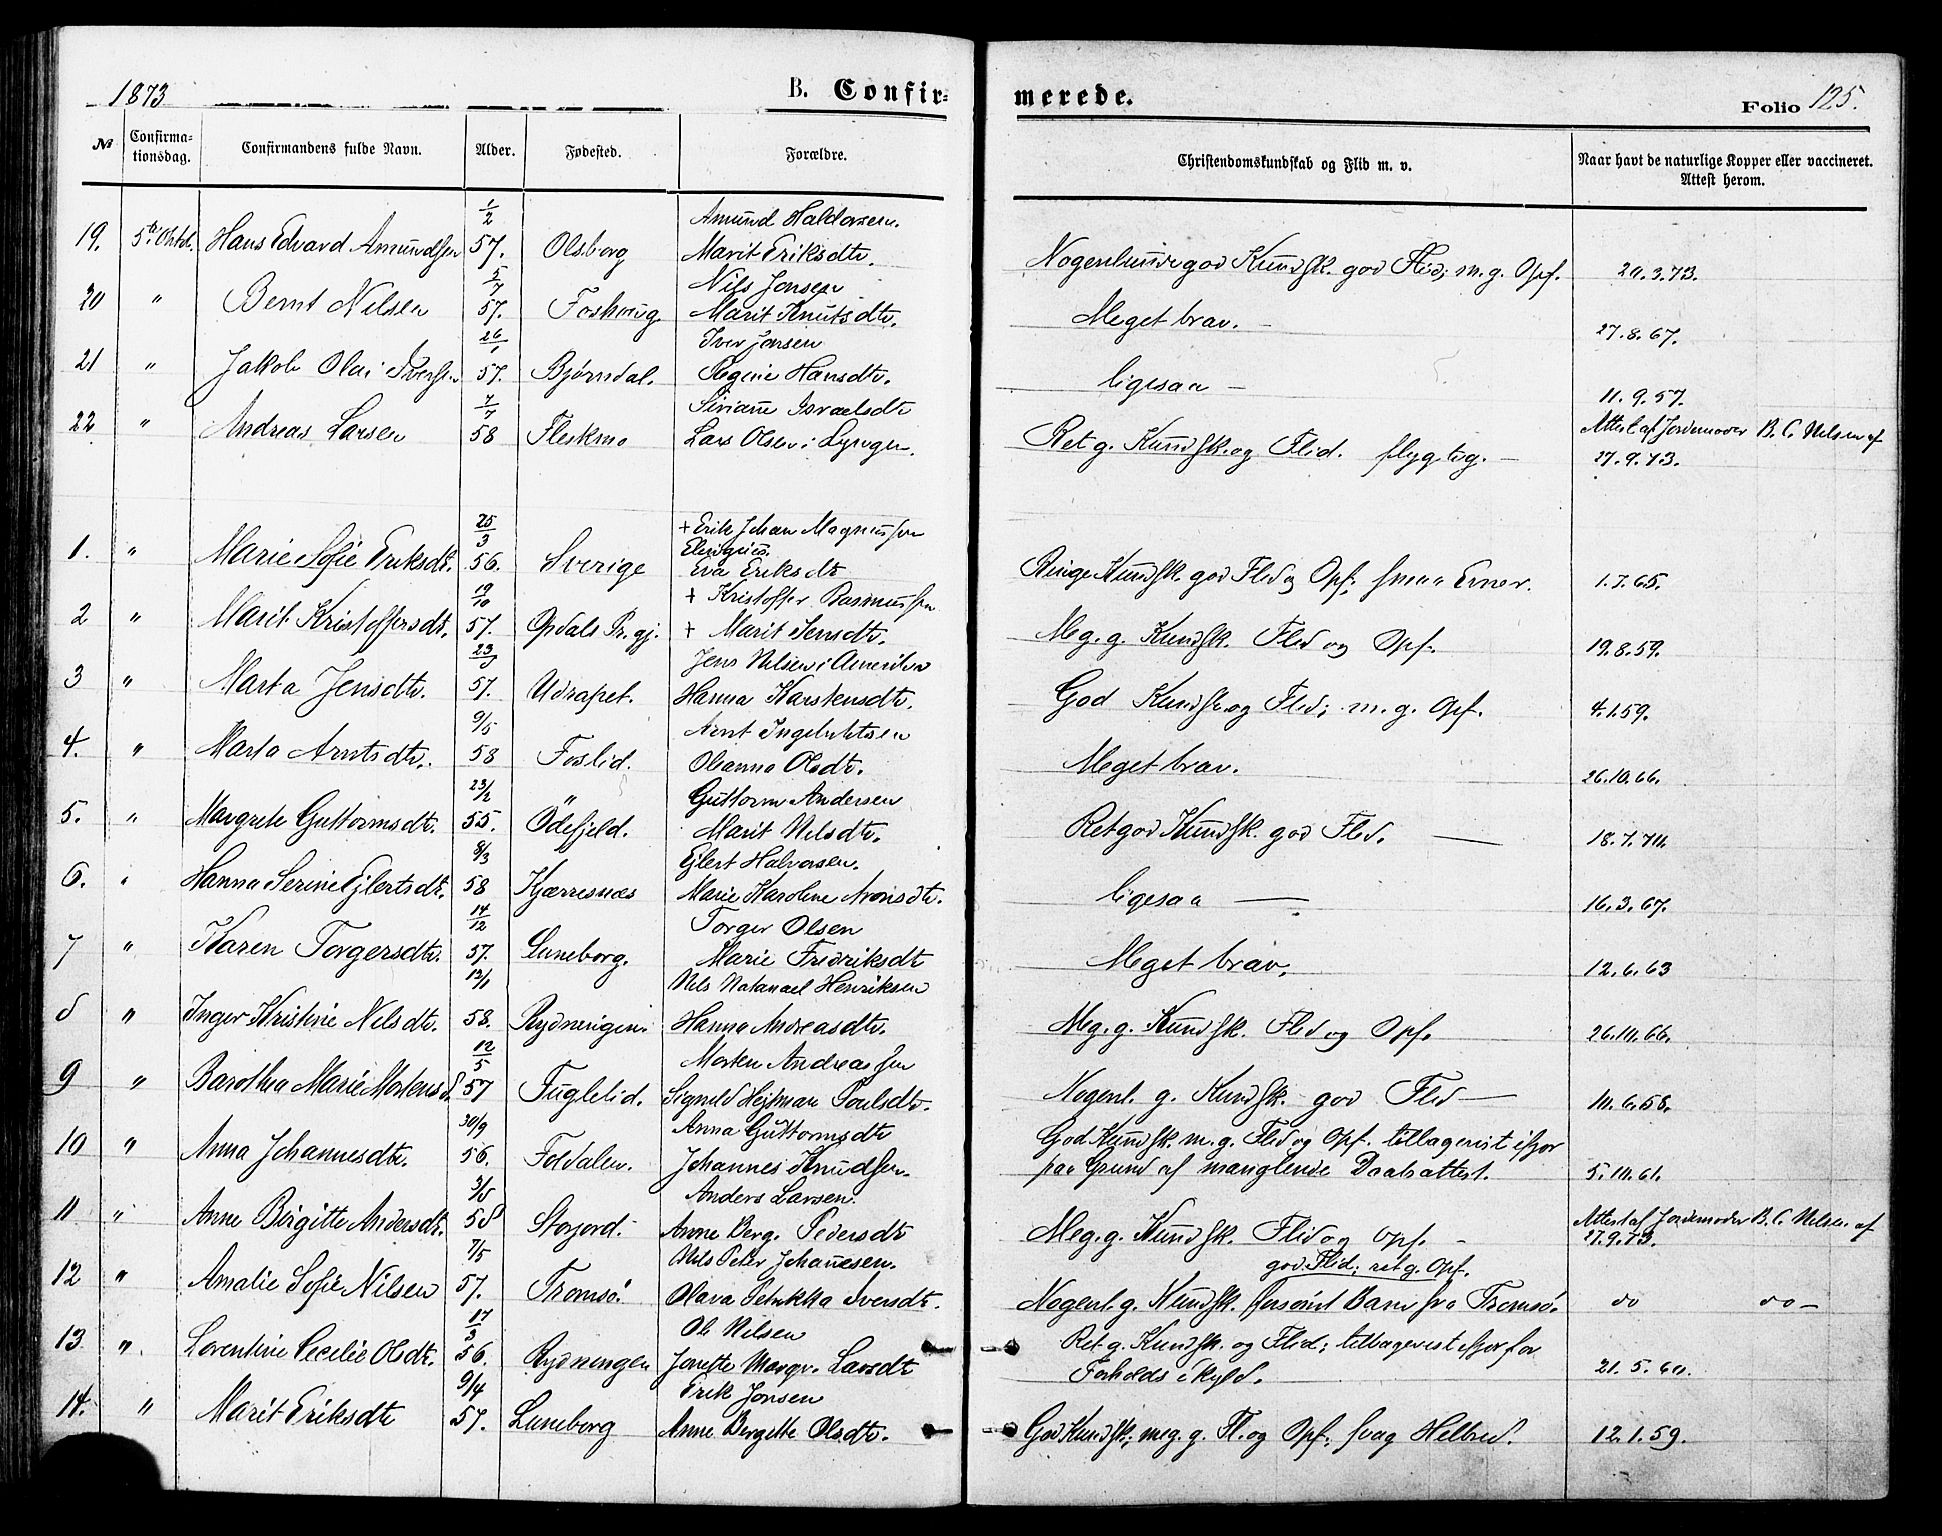 1873 B. Confirmerede. Folio 125.
№ Confirmationsdag. Confirmandens fulde Navn. Alder. Fødested. Forældre. Christendomskundskab og Flid m. v. Naar havt de naturlige Kopper eller vaccineret. Attest herom.
1/2 Amund Haldorsen.
19. 5te Oktb. Hans Edvard Amundsen 57. Olsborg Marit Eriksdtr. Nogenlunde god Kundsk. god Flid; m. g. Opf. 20.3.73.
5/7 Nils Jonsen
20 " Bernt Nilsen 57. Foshaug Marit Knutsdtr. Meget brav. — 27.8.67.
26/1 Iver Jonsen
21 " Jakob Olai Iversen 57. Bjørndal. Regine Hansdtr. ligesaa — 11.9.57.
7/7 Siriane Israelsdtr
22 " Andreas Larsen 58 Fleskmo Lars Olsen i Lyngen. Ret g. Kundsk. og Flid. flygtig. — Attest af Jordemoder B. C. Nilsen af
27.9.73.
25/3 + Erik Johan Magnussen
1. " Marie Sofie Eriksdt. 56. Sverige Eva Eriksdt Ringe Kundsk. god Flid og Opf. smaa Evner. 1.7.65.
19/10 + Kristoffer Rasmussen
2 " Marit Kristoffersdt. 57. Opdals Pr.gj. + Marit Jensdtr. Meg. g. Kundsk. Flid og Opf. 19.8.59.
Jens Nilsen i Amerika
3 " Marta Jensdtr. 57. Udrapet. Hanna Karstensdtr. God Kundsk. og Flid; m. g. Opf. 4.1.59.
9/5 Arnt Ingebritsen
4. " Marta Arntsdtr. 58 Foslid. Oleanna Olsdtr. Meget brav. 26.10.66.
23/2 Guttorm Andersen
5. " Margrete Guttormsdtr. 55. Ödefjeld. Marit Nilsdtr. Ret god Kundsk. god Flid. —
8/3 Ejlert Halvorsen.
6. " Hanna Serine Ejlertsdt. 58 Kjærresnæs Marie Karoline Aronsdtr. ligesaa — 16.3.67.
14/12 Torger Olsen
7 " Karen Torgersdtr. 57. Luneborg. Marie Fredriksdt Meget brav. 12.6.63
12/1 Nils Natanael Henriksen
8 " Inger Kristine Nilsdtr. 58. Rydningen. Hanna Andreasdtr. Meg. g. Kundsk. Flid og Opf.
12/5 Morten Andreassen
9 " Barothea Marie Mortensd. 57 Fuglelid. Signeld Hejtman Poulsdtr. Nogenl. g. Kundsk. god Flid —
30/9 Anna Guttormsdtr God Kundsk. m. g. Flid og Opf. tilbagevist ifjor
10 " Anna Johannesdtr. 56. Foldalen. Johannes Knudsen. paa Grund af manglende Daabsattest.
3/8 Anders Larsen.
11 " Anne Birgitte Andersdt. 58 Storjord. Anne Berg. Pedersdt Meg. g. Kundsk. Flid og Opf. — Attest af Jordemoder B. C. Nilsen af
27.9.73.
7/5 Nils Peter Johanesen. god Flid; ret g. Opf.
12 " Amalie Sofie Nilsen 57. Tromsö. Olava Petrikka Iversdtr. Nogenl. g. Kundsk. forsömt Barn fra Tromsö. do do —
17/3 Ole Nilsen Ret g. Kundsk. og Flid; tilbagevist ifjor for
13. " Lorentine Cecilie Olsdt. 56. Rydningen Jonette Margr. Larsdt Forholds skyld.
9/4 Erik Jonsen
14. " Marit Eriksdtr 57. Luneborg Anne Bergitte Olsdtr. God Kundsk; meg. g. Fl. og Opf; svag Helbred. 12.1.59.